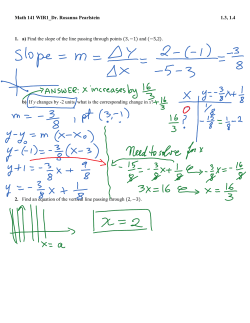 Math 141 WIR1_Dr. Rosanna Pearlstein 1.3, 1.4
1. a) Find the slope of the line passing through points (3, −1) and (−5,2).
Slope = m = ΔY/ΔX = (2 - (-1))/(-5 - 3) = -3/8
ANSWER: X increases by 16/3
b) If y changes by -2 units, what is the corresponding change in x?
m = -3/8, pt (3, -1)
y - y₀ = m (x - x₀)
y - (-1) = -3/8 (x - 3)
y + 1 = -3/8 x + 9/8
y = -3/8 x + 1/8
X y = -3/8 x + 1/8
0 1/8
16/3 ? -15/8 = 1/8 - 2
Need to solve for x
-15/8 = -3/8 x + 1/8 ⇔ -3/8 x = -16/8
3x = 16 ⇔ x = 16/3
2. Find an equation of the vertical line passing through (2, −3).
x = a
x = 2